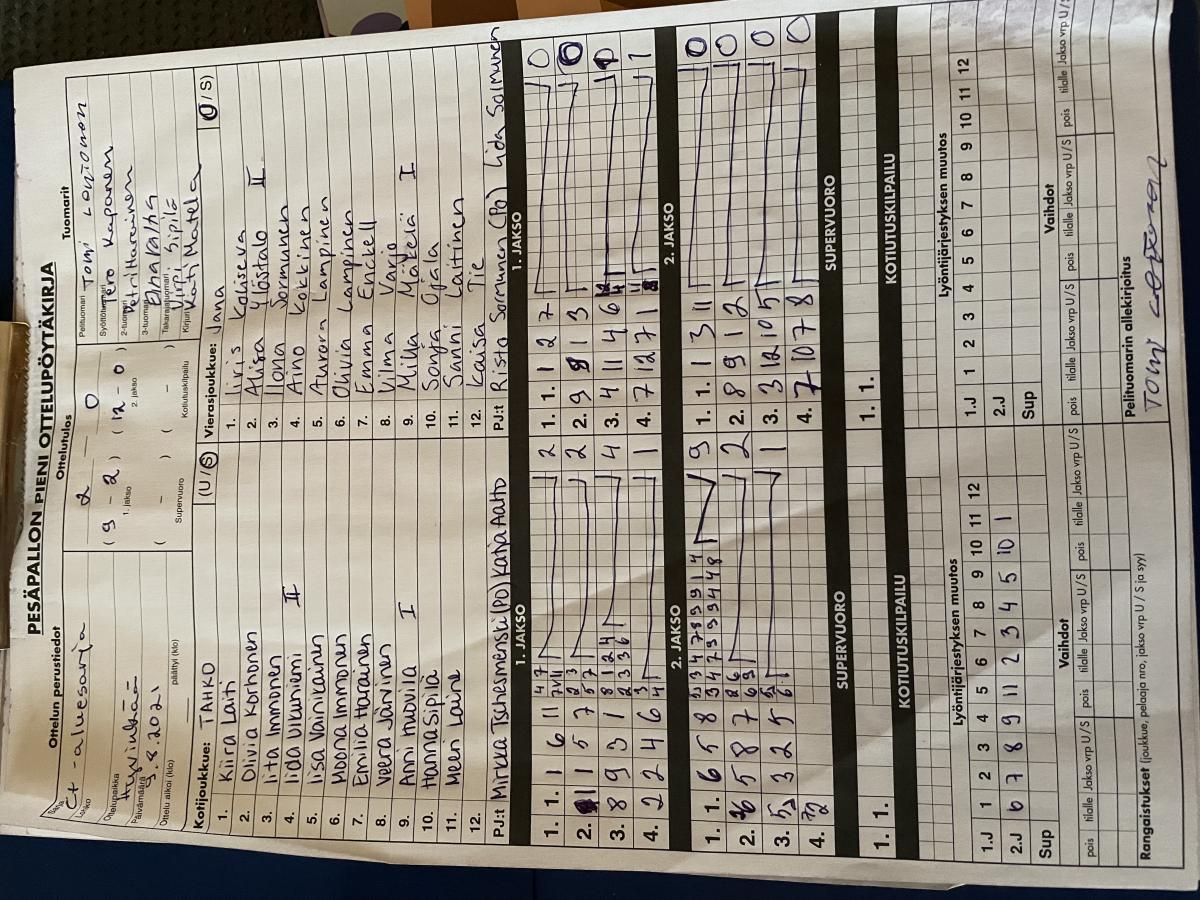 PESÄPALLON PIENI OTTELUPÖYTÄKIRJA
Ottelun perustiedot
Ottelutulos
Tuomarit
Sarja
C+ - aluesarja
Lohko
Ottelupaikka
Hyvinkää
Päivämäärä
9.8.2021
Ottelu alkoi (klo)
päättyi (klo)
2 — 0
( 9 - 2 ) ( 12 - 0 )
1. jakso
2. jakso
( - ) ( - )
Supervuoro
Kotiutuskilpailu
Pelituomari
Tomi
Syöttötuomari
Eero Kapanen
2-tuomari
Petri Harainen
3-tuomari
Takarajatuomari
Virpi Sipilä
Kirjuri
Kati Matela
Kotijoukkue: TAHKO (U / S)
1. Kiira Laiti
2. Olivia Korhonen
3. Iita Immonen
4. Iida Ukurniemi II
5. Iisa Vainikainen
6. Moona Immonen
7. Emilia Harainen
8. Veera Järvinen
9. Anni Huovila I
10. Hanna Sipilä
11. Meeri Laine
12.
PJ:t Mirkka Tschesmenski (PO) Katja Aalto
Vierasjoukkue: Jana (U / S)
1. Iiris Koliseva
2. Alisa Ylöstalo II
3. Ilona Sormunen
4. Aino Kokkinen
5. Aurora Lampinen
6. Olivia Lampinen
7. Emma Enckell
8. Vilma Vario
9. Milla Mäkelä I
10. Sonja Ojala
11. Sanni Laitinen
12. Kaisa Tie
PJ:t Risto Sormunen (PO) Iida Salmunen
1. JAKSO
1. 1. 1 6 11 2
2. 1 5 7 2
3. 8 9 3 1 4
4. 2 2 4 6 1
1. JAKSO
1. 1. 1 2 7 0
2. 9 8 1 3 0
3. 4 11 4 6 1
4. 7 12 7 1 1
2. JAKSO
1. 1. 6 5 8 9
2. 5 8 7 2
3. 5 3 2 5 1
4. 7 2
2. JAKSO
1. 1. 1 3 11 0
2. 8 9 1 2 0
3. 3 12 10 5 0
4. 7 10 7 8 0
SUPERVUORO
1. 1.
SUPERVUORO
1. 1.
KOTIUTUSKILPAILU
KOTIUTUSKILPAILU
Lyöntijärjestyksen muutos
1.J 1 2 3 4 5 6 7 8 9 10 11 12
2.J 6 7 8 9 11 2 3 4 5 10 1
Sup
Lyöntijärjestyksen muutos
1.J 1 2 3 4 5 6 7 8 9 10 11 12
2.J
Sup
Vaihdot
pois tilalle Jakso vrp U / S pois tilalle Jakso vrp U / S pois tilalle Jakso vrp U / S
Vaihdot
pois tilalle Jakso vrp U / S pois tilalle Jakso vrp U / S pois tilalle Jakso vrp U / S
Rangaistukset (joukkue, pelaaja nro, jakso vrp U / S ja syy)
Pelituomarin allekirjoitus
Tomi